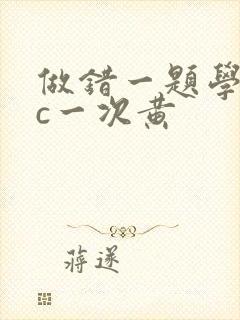 做錯一題學
c一次黄
蔣遂